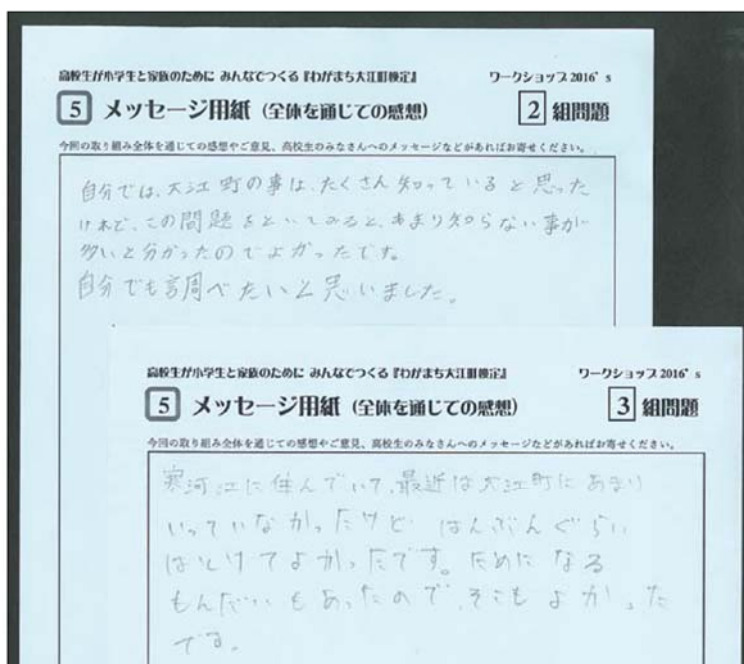 高校生が小学生と家族のために みんなでつくる『わがまち大江町検定』 ワークショップ2016’s
5 メッセージ用紙（全体を通じての感想） 2 組問題
今回の取り組み全体を通じての感想やご意見、高校生のみなさんへのメッセージなどがあればお寄せください。
自分では、大江町の事は、たくさん知っていると思った
けれど、この問題をといてみると、あまり知らない事が
多いと分かったのでよかったです。
自分でも調べたいと思いました。
高校生が小学生と家族のために みんなでつくる『わがまち大江町検定』 ワークショップ2016’s
5 メッセージ用紙（全体を通じての感想） 3 組問題
今回の取り組み全体を通じての感想やご意見、高校生のみなさんへのメッセージなどがあればお寄せください。
寒河江に住んでいて、最近は大江町にあまり
いっていなかったけど はんぶんぐらい
はとけてよかったです。ためになる
もんだいもあったので、そこもよかった
です。